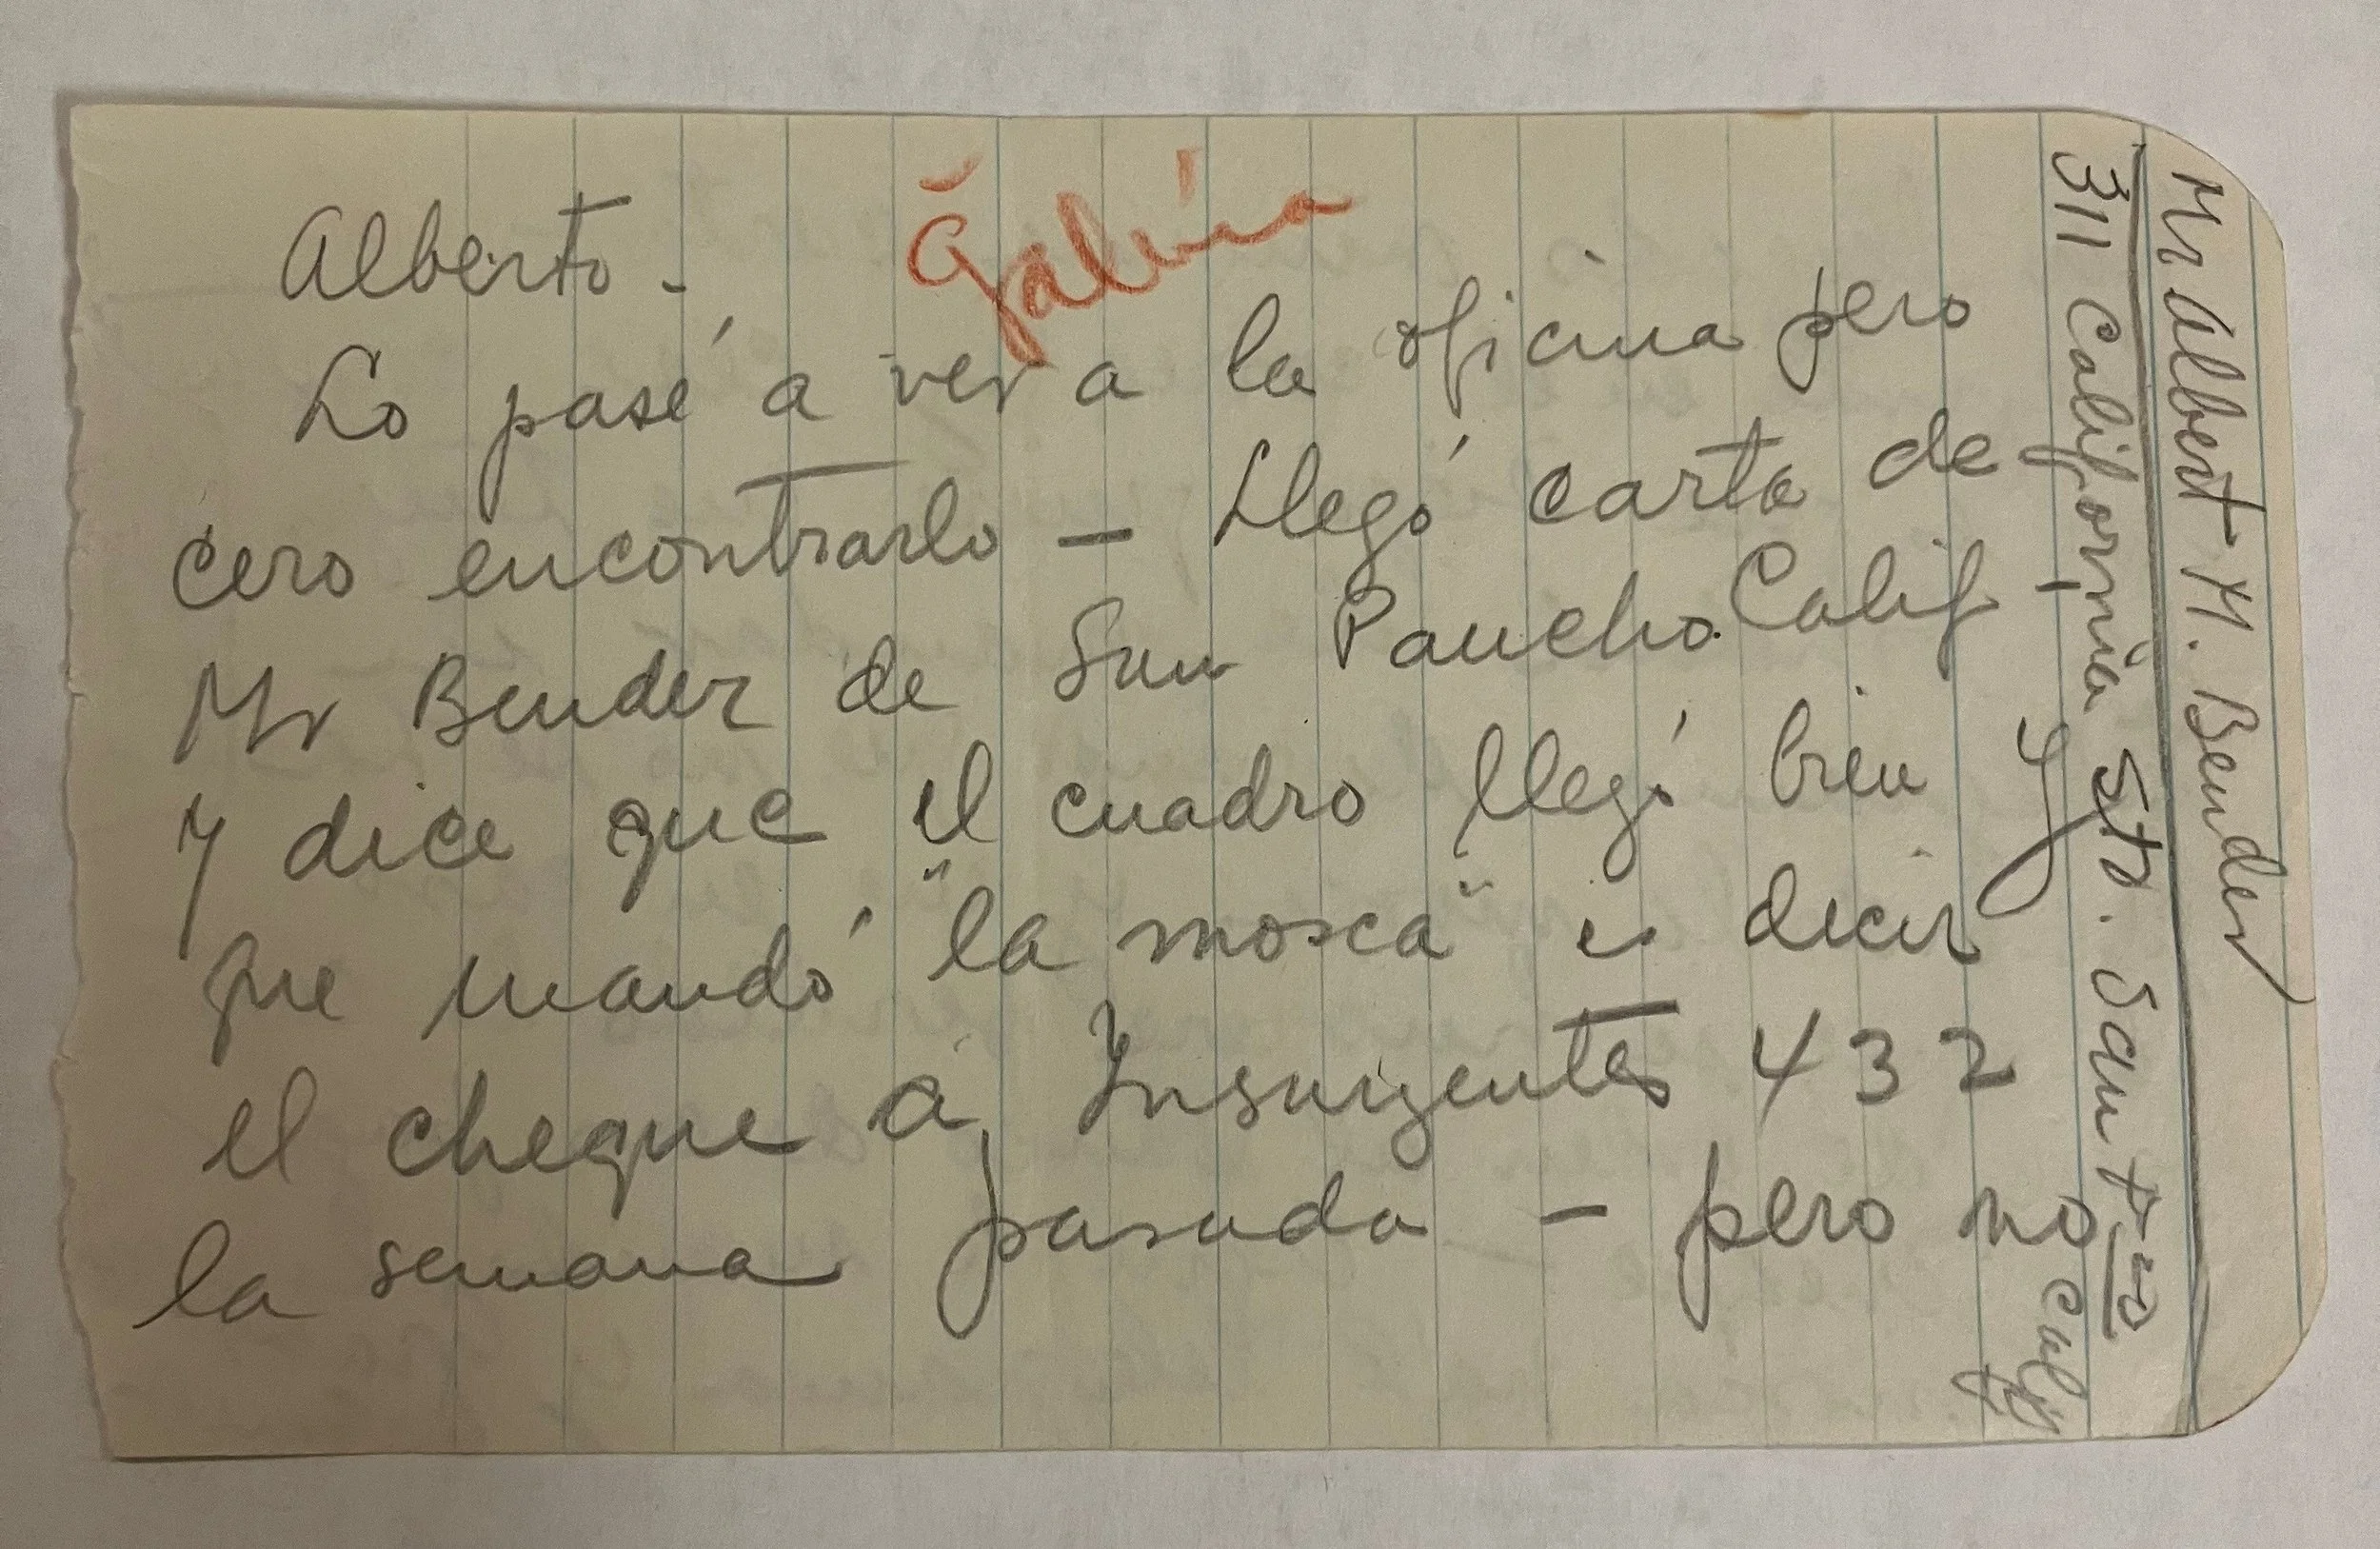 Alberto - Galería
Lo pasé a ver a la oficina pero
cero encontrarlo - Llegó carta de
Mr Bender de San Pancho. Calif -
Y dice que el cuadro llegó bien y
que mandó "la mosca" es decir
el cheque a Insurgentes 432
la semana pasada - pero no
Mr Albert M. Bender
311 California Str. San
Calif